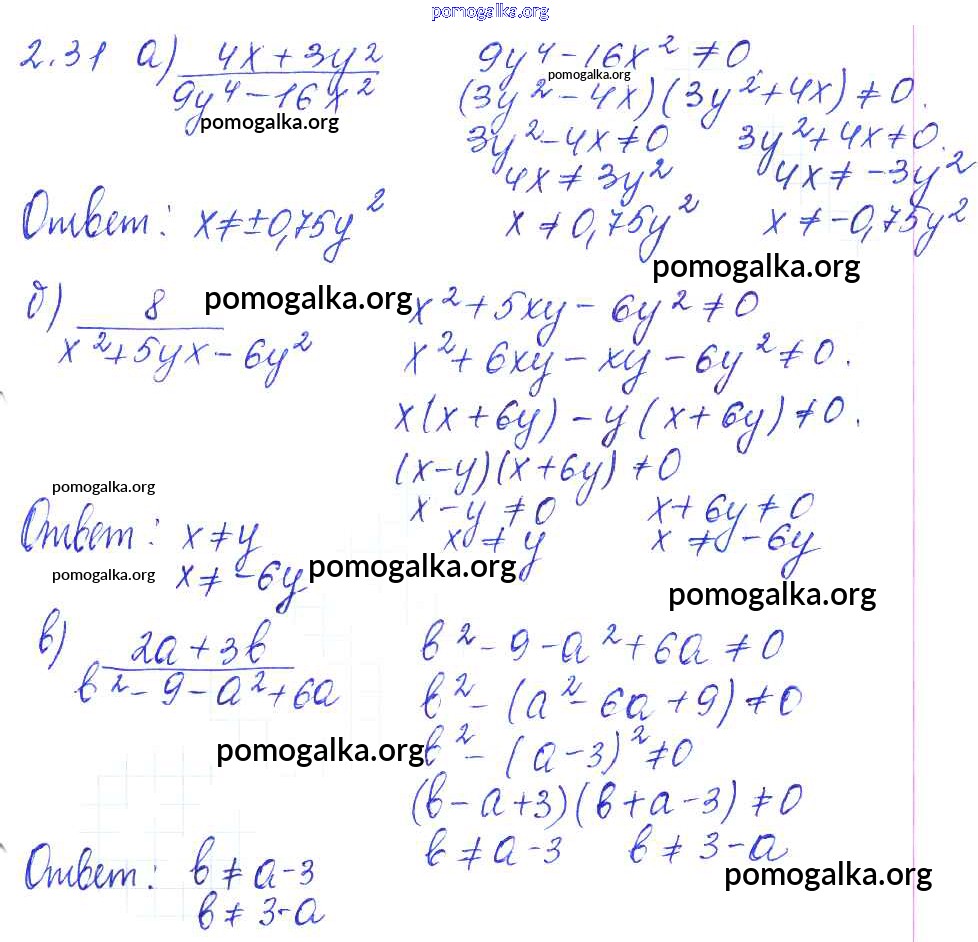 pomogalka.org
2.31 а) (4x + 3y²)/(9y⁴ - 16x²) 9y⁴ - 16x² ≠ 0
pomogalka.org
(3y² - 4x)(3y² + 4x) ≠ 0.
pomogalka.org
3y² - 4x ≠ 0 3y² + 4x ≠ 0.
4x ≠ 3y² 4x ≠ -3y²
Ответ: x ≠ ±0,75y² x ≠ 0,75y² x ≠ -0,75y²
pomogalka.org
б) 8/(x² + 5yx - 6y²) pomogalka.org x² + 5xy - 6y² ≠ 0
x² + 6xy - xy - 6y² ≠ 0.
x(x + 6y) - y(x + 6y) ≠ 0.
(x - y)(x + 6y) ≠ 0
pomogalka.org
x - y ≠ 0 x + 6y ≠ 0
Ответ: x ≠ y x ≠ y x ≠ -6y
pomogalka.org x ≠ -6y pomogalka.org
pomogalka.org
в) (2a + 3b)/(b² - 9 - a² + 6a) b² - 9 - a² + 6a ≠ 0
b² - (a² - 6a + 9) ≠ 0
pomogalka.org b² - (a - 3)² ≠ 0
(b - a + 3)(b + a - 3) ≠ 0
b ≠ a - 3 b ≠ 3 - a
Ответ: b ≠ a - 3 pomogalka.org
b ≠ 3 - a